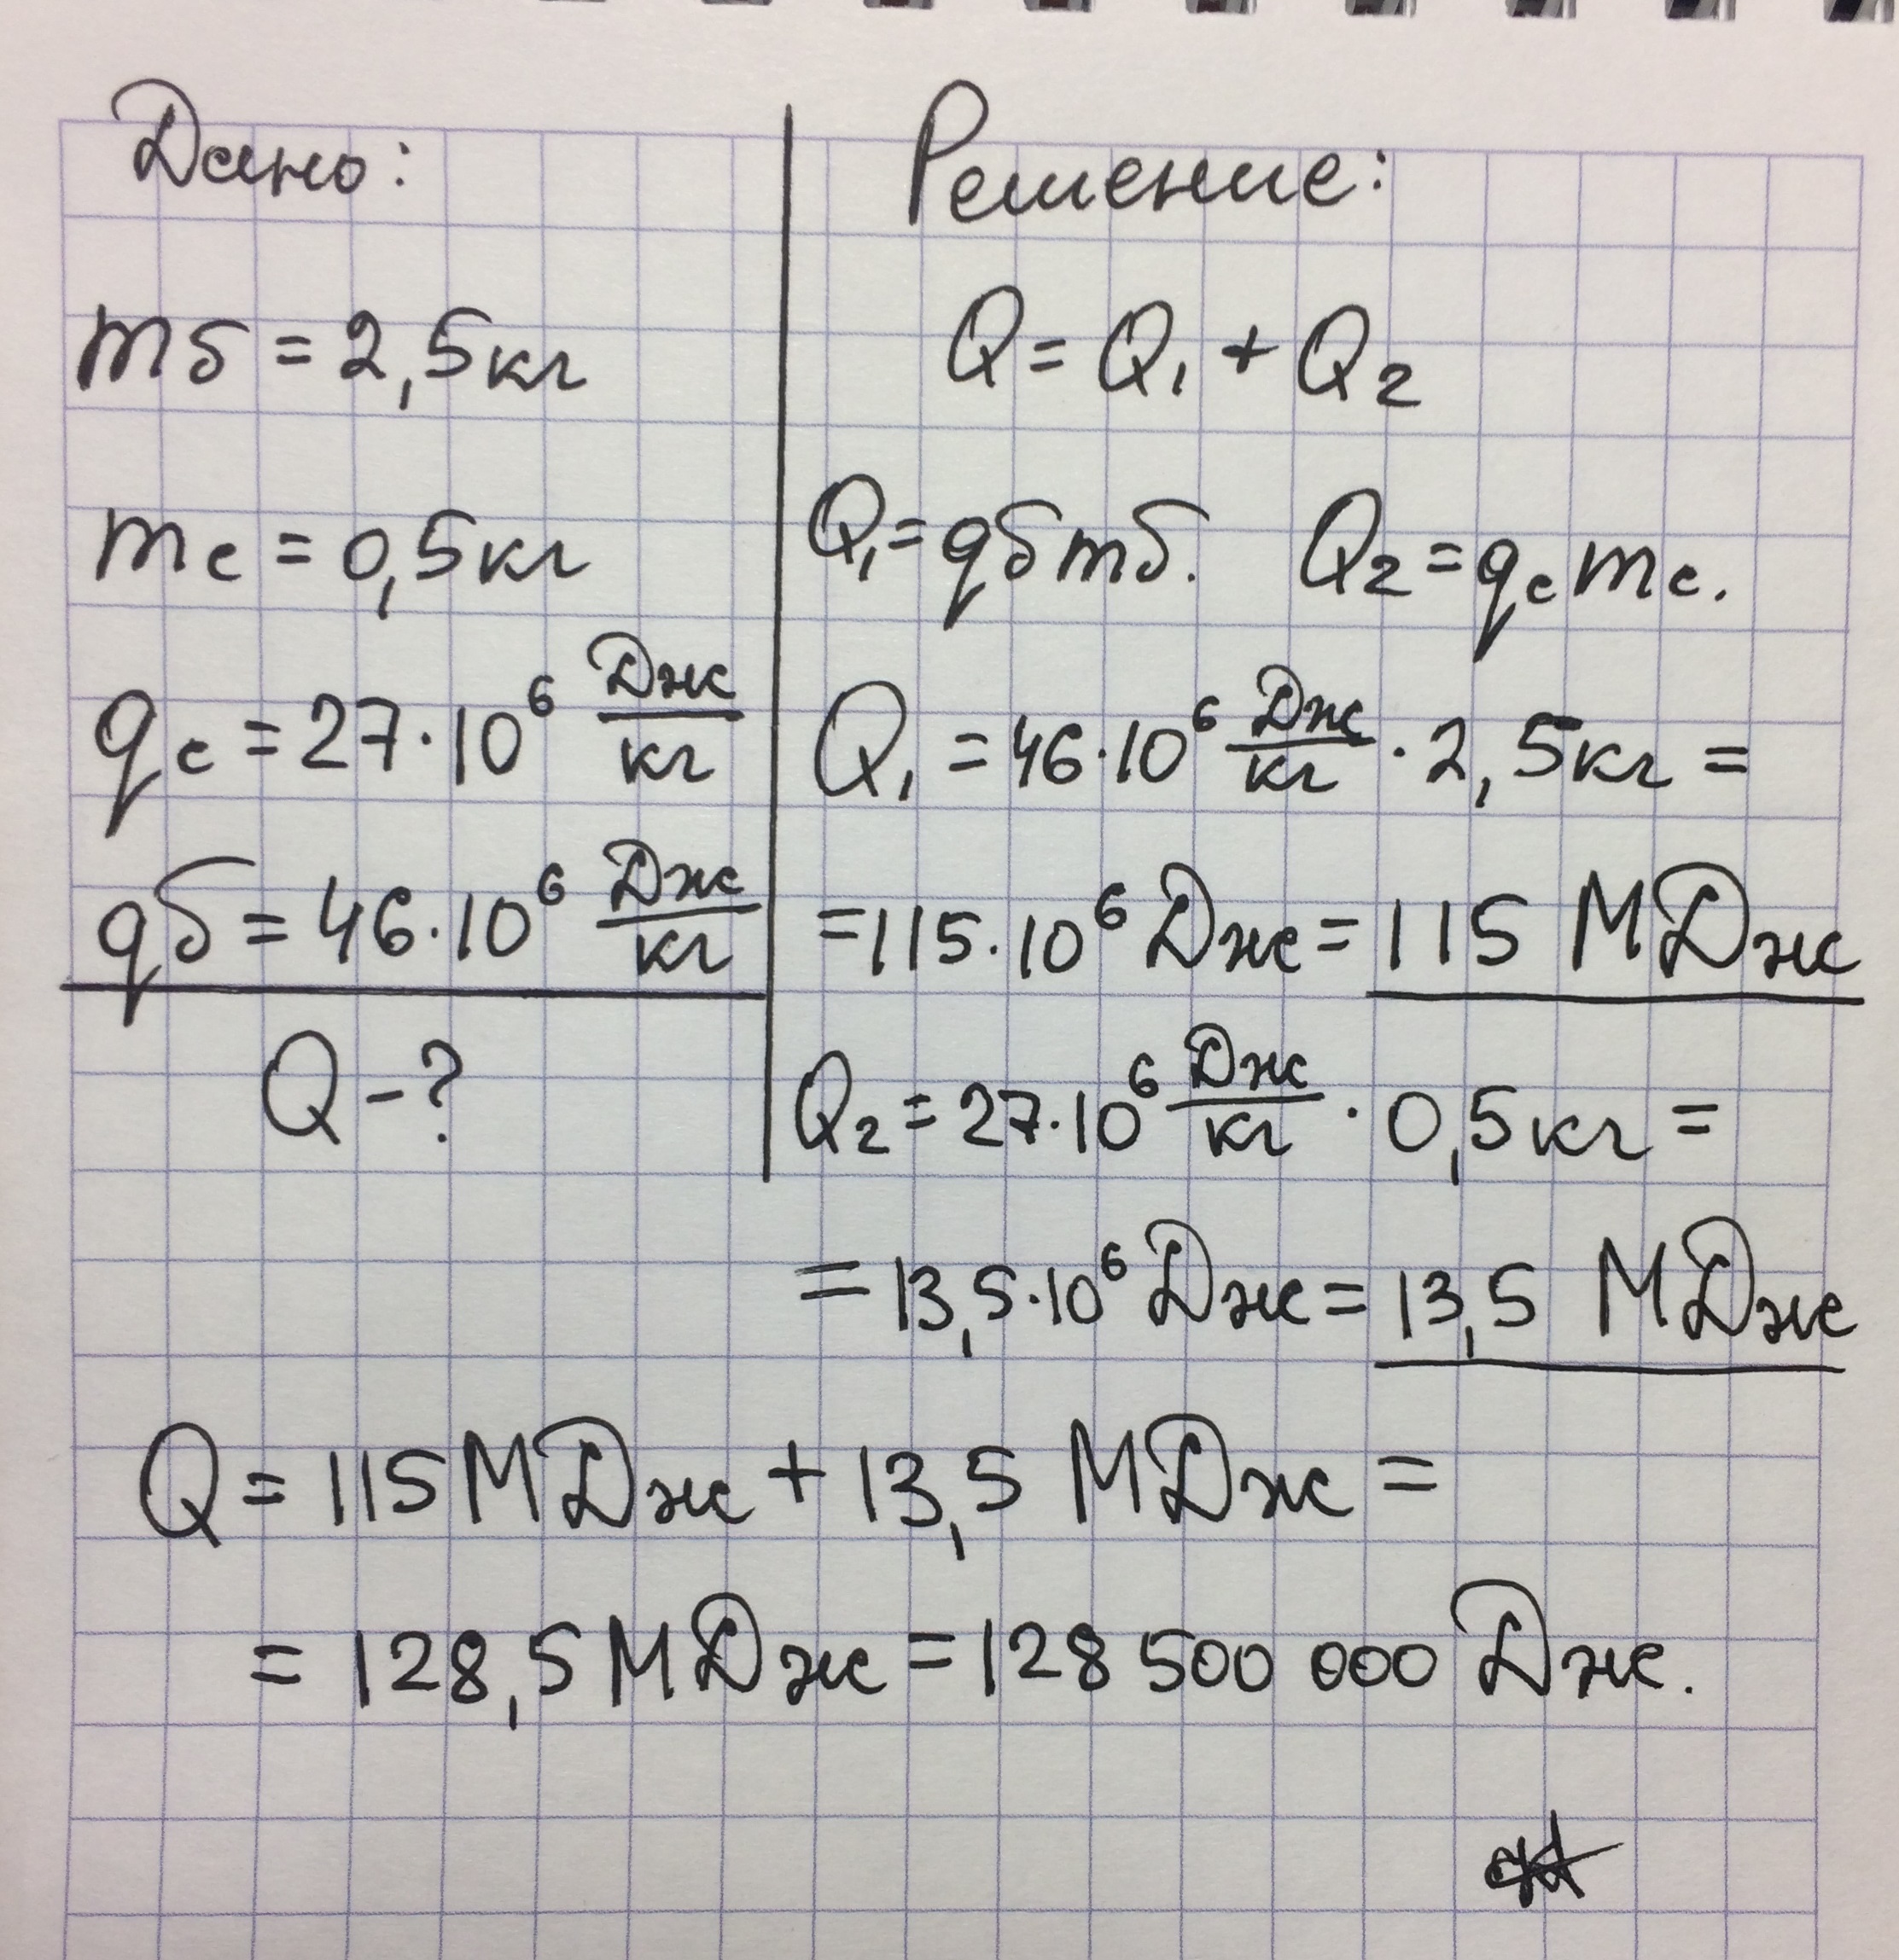 Дано:
mб = 2,5кг
mс = 0,5кг
qс = 27·10⁶ Дж/кг
qб = 46·10⁶ Дж/кг
Q - ?
Решение:
Q = Q₁ + Q₂
Q₁ = qбmб. Q₂ = qсmс.
Q₁ = 46·10⁶ Дж/кг · 2,5кг =
= 115·10⁶ Дж = 115 МДж
Q₂ = 27·10⁶ Дж/кг · 0,5кг =
= 13,5·10⁶ Дж = 13,5 МДж
Q = 115 МДж + 13,5 МДж =
= 128,5 МДж = 128 500 000 Дж.